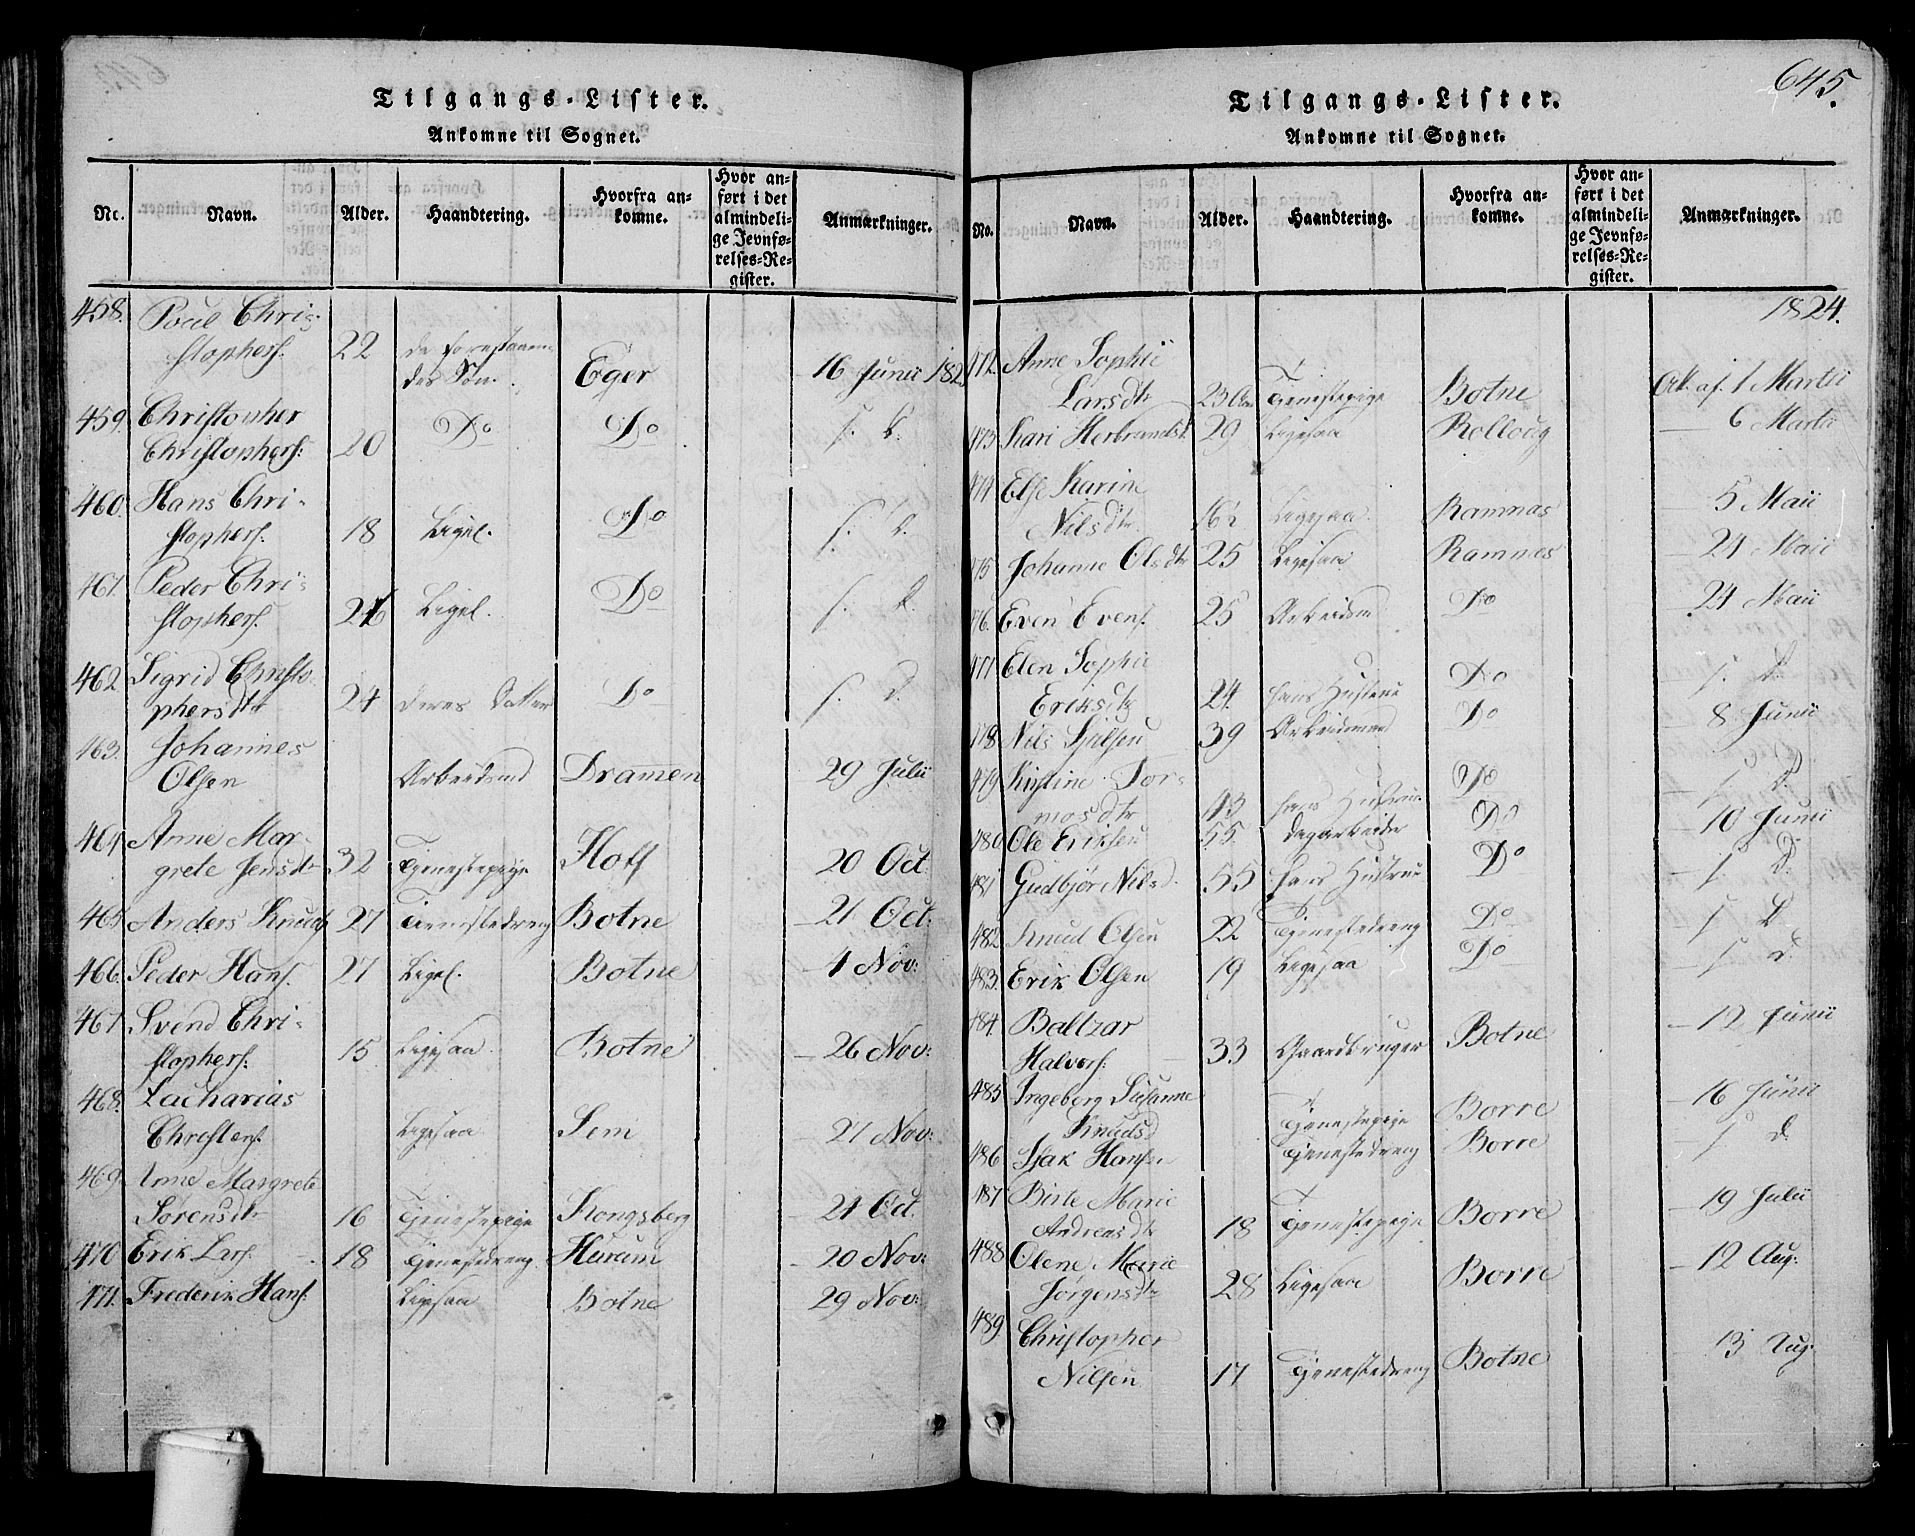 Tilgangs-Lister.
Ankomne til Sognet.
No. Navn. Alder. Haandtering. Hvorfra ankomne. Hvor anført i det almindelige Jevnførelses-Register. Anmarkninger.
458. Poul Chri-
stophers. 22 de forestaaen-
des Søn. Eger 16 Junii 182
459. Christopher
Christophers. 20 Do Do s. D.
460. Hans Chri-
stophers. 18 Ligel. Do s. D.
461. Peder Chri-
stophers. Ligel. Do s. D.
462 Sigrid Christo-
phersdtr 24 deres Datter Do s. D.
463. Johannes
Olsen Arbeidsmd Dramen 29 Julii
464 Anne Mar-
grete Jensdtr 32 Tjenestepige Hoff 20 Oct.
465 Anders Knuds. 27 Tienestedreng Botne 21 Oct.
466. Peder Hans. 27 Ligel. Botne 4 Nov:
467. Svend Chri-
stophers. 15 Ligesaa Botne 26 Nov:
468. Zacharias
Christens. Ligesaa Sem 27 Nov:
469. Anne Margrete
Sørensdtr 16 Tjenestepige Kongsberg 21 Oct.
470 Erik Lars. 18 Tjenestedreng. Hurum 20 Nov:
471. Frederik Hans. Ligesaa Botne 29 Nov:
645.
Tilgangs-Lister.
Ankomne til Sognet.
No. Navn. Alder. Haandtering. Hvorfra ankomne. Hvor anført i det almindelige Jevnførelses-Register. Anmarkninger.
1824.
472. Anne Sophie
Larsdtr Tjenestepige Botne af 1 Martii
473 Kari Herbrandsd. 29 Ligesaa Rolloug 6 Martii
474 Else Karine
Nilsdtr Ligesaa Ramnæs 5 Maii
475 Johanne Olsdtr 25 Ligesaa Ramnes 24 Maii
476. Even Evens. 25 Arbeidsmd Do 24 Maii
477 Elen Sophie
Eriksdtr 24. hans Hustrue Do s. D.
478 Nils 39 Arbeidsmand Do 8 Junii
479 Kistine Tor-
mosdtr 43 hans Hustrue Do s. D.
480 Ole Eriksen 55. Dagarbeider Do 10 Junii
481 Gudbjør Nilsd. 55 hans Hustrue Do s. D.
482 Knud Olsen 22 Tjenestedreng Do s. D.
483. Erik Olsen 19 Ligesaa Do s. D.
484. Baltzar
Halvors. 33 Gaardbruger Botne 12 Junii
485 Ingeborg Susanne
Knudsd Tjenestepige Borre 16 Junii
486 Isak Hansen Tjenestedreng Borre s. D.
487 Birte Marie
Andreasdtr 18 Tjenestepige Borre 19 Julii
488 Olene Marie
Jørgensdtr 28 Ligesaa Borre 12 Aug:
489. Christopher
Nilsen 17 Tjenestedreng Botne 13 Aug.